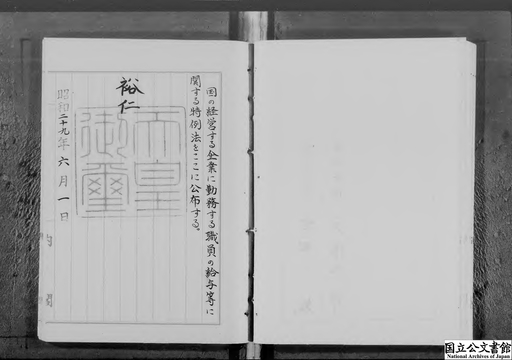 国の経営する企業に勤務する職員の給与等に
関する特例法をここに公布する。
裕仁
天皇
御璽
昭和二十九年六月一日
内閣
国立公文書館
National Archives of Japan